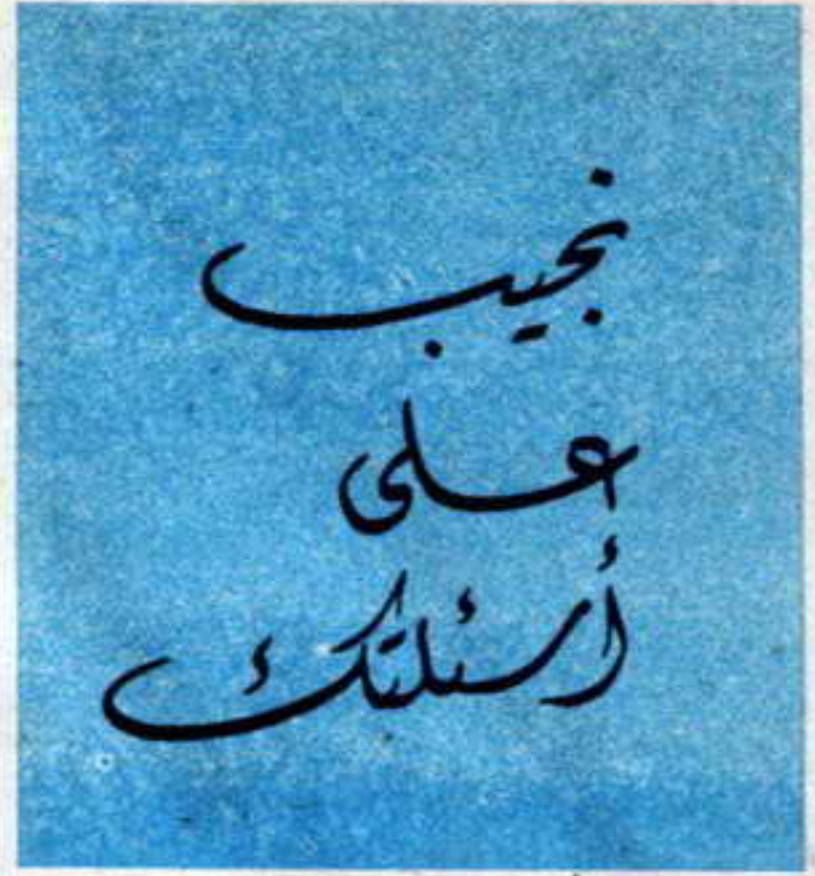 نجيب
على
أسئلتك